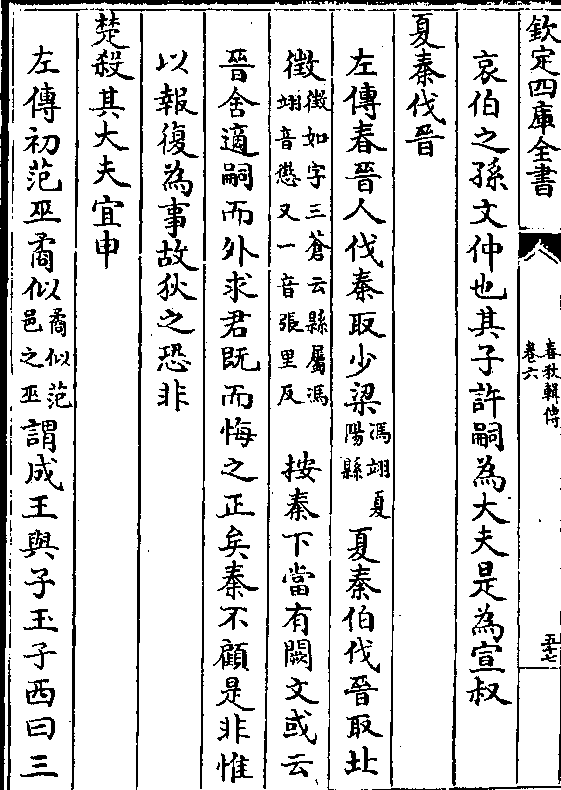 欽定四庫全書
春秋輯傳
卷六
五七
哀伯之孫文仲也其子許嗣為大夫是為宣叔
夏秦伐晉
左傳春晉人伐秦取少梁馮翊夏陽縣夏秦伯伐晉取北
徵徵如字三蒼云縣屬馮翊音懲又一音張里反 按秦下當有闕文或云
晉舍適嗣而外求君既而悔之正矣秦不顧是非惟
以報復為事故狄之恐非
楚殺其大夫宜申
左傳初范巫矞似矞似范邑之巫謂成王與子玉子西曰三